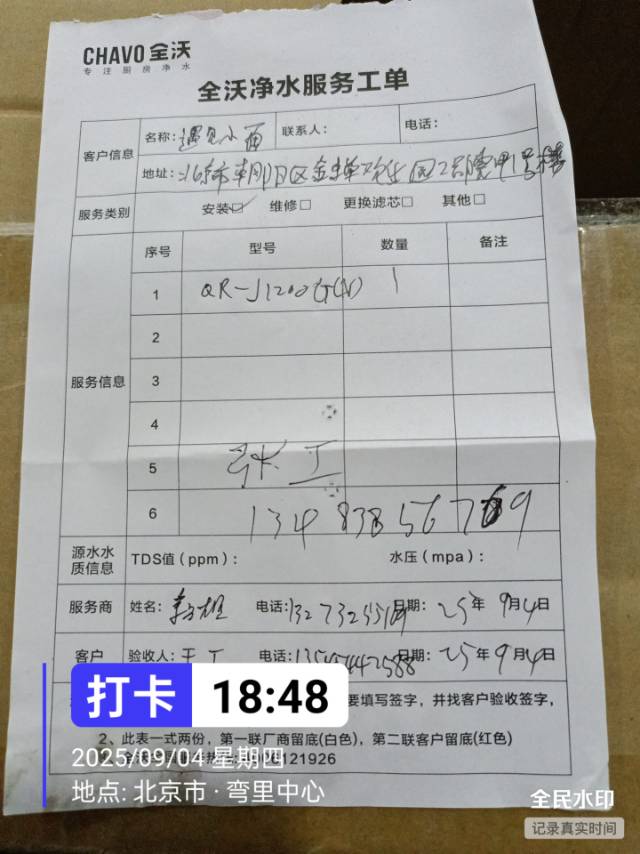 CHAVO 全沃
专注厨房净水
全沃净水服务工单
客户信息 名称: 遇见小面 联系人: 电话:
地址: 北京市朝阳区金
服务类别 安装☑ 维修□ 更换滤芯□ 其他□
服务信息 序号 型号 数量 备注
1 QR-J1200G(N) 1
2
3
4
5 张工
6 134 838 567
源水水质信息 TDS值(ppm): 水压(mpa):
服务商 姓名: 电话: 日期: 25年 9月4日
客户 验收人: 王工 电话: 日期: 25年 9月4日
要填写签字,并找客户验收签字,
2、此表一式两份,第一联厂商留底(白色),第二联客户留底(红色)
121926
打卡 18:48
2025/09/04 星期四
地点: 北京市·弯里中心
全民水印
记录真实时间